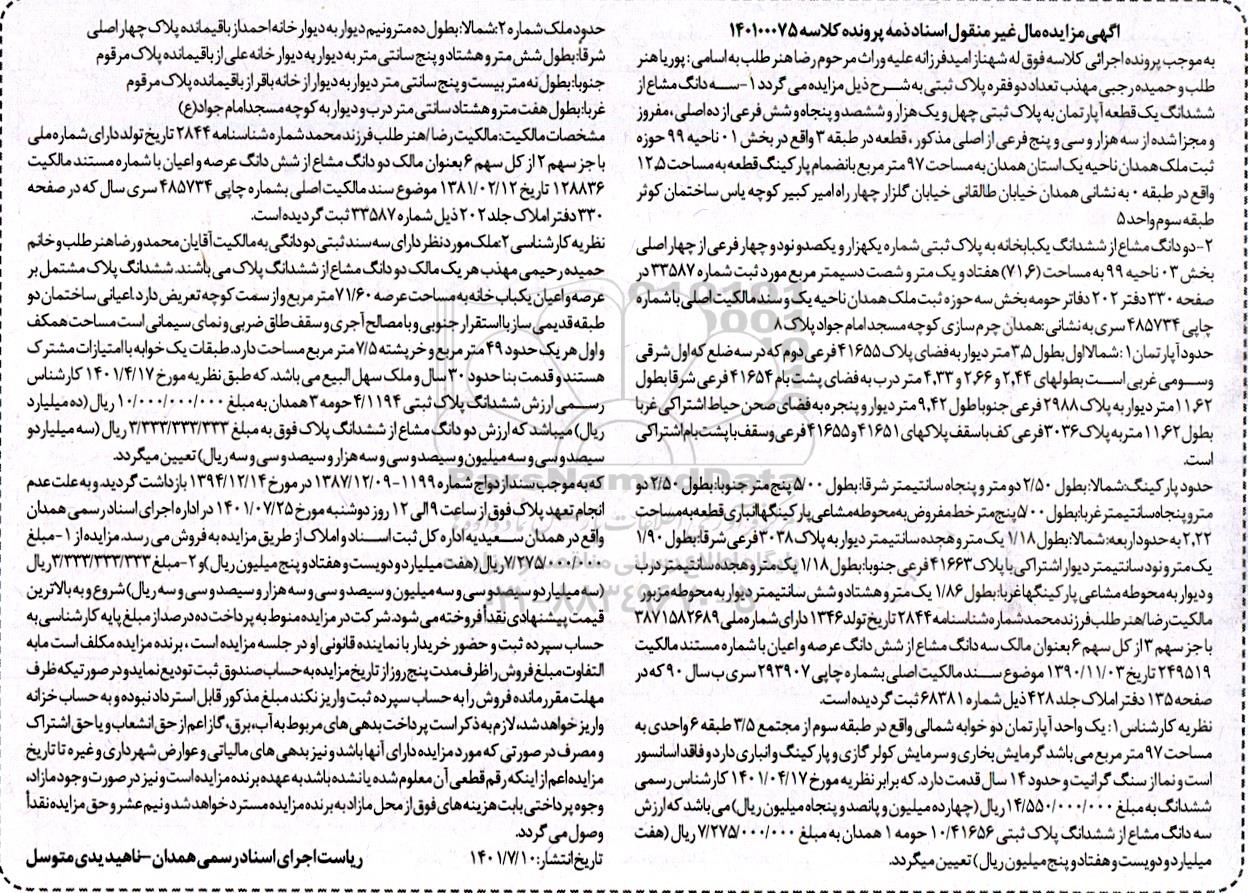 آگهی مزایده مال غیر منقول اسناد ذمه پرونده کلاسه ۱۴۰۱۰۰۰۷۵
به موجب پرونده اجرائی کلاسه فوق له شهناز امیدفرزانه علیه وراث مرحوم رضا هنر طلب به اسامی : پوریا هنر
طلب و حمیده رجبی مهذب تعداد دو فقره پلاک ثبتی به شرح ذیل مزایده می گردد ۱- سه دانگ مشاع از
ششدانگ یک قطعه آپارتمان به پلاک ثبتی چهل و یک هزار و ششصد و پنجاه و شش فرعی از ده اصلی ، مفروز
و مجزا شده از سه هزار و سی و پنج فرعی از اصلی مذکور ، قطعه در طبقه ۳ واقع در بخش ۰۱ ناحیه ۹۹ حوزه
ثبت ملک همدان ناحیه یک استان همدان به مساحت ۹۷ متر مربع بانضمام پارکینگ قطعه به مساحت ۱۲,۵
واقع در طبقه ۰ به نشانی همدان خیابان طالقانی خیابان گلزار چهار راه امیر کبیر کوچه یاس ساختمان کوثر
طبقه سوم واحد ۵
۲-دو دانگ مشاع از ششدانگ یکبابخانه به پلاک ثبتی شماره یکهزار و یکصد و نود و چهار فرعی از چهار اصلی
بخش ۰۳ ناحیه ۹۹ به مساحت (۷۱,۶) هفتاد و یک متر و شصت دسیمتر مربع مورد ثبت شماره ۳۳۵۸۷ در
صفحه ۳۳۰ دفتر ۲۰۲ دفاتر حومه بخش سه حوزه ثبت ملک همدان ناحیه یک و سند مالکیت اصلی با شماره
چاپی ۴۸۵۷۳۴ سری به نشانی :همدان چرم سازی کوچه مسجد امام جواد پلاک ۸
حدود آپارتمان ۱ : شمالا اول بطول ۳,۵ متر دیوار به فضای پلاک ۴۱۶۵۵ فرعی دوم که در سه ضلع که اول شرقی
وسومی غربی است بطولهای ۲,۴۴ و ۲,۶۶ و ۴,۳۳ متر درب به فضای پشت بام ۴۱۶۵۴ فرعی شرقا بطول
۱۱,۶۲ متر دیوار به پلاک ۲۹۸۸ فرعی جنوبا طول ۹,۴۲ متر دیوار و پنجره به فضای صحن حیاط اشتراکی غربا
بطول ۱۱,۶۲ متر به پلاک ۳۰۳۶ فرعی کف با سقف پلاکهای ۴۱۶۵۱ و ۴۱۶۵۵ فرعی وسقف با پشت بام اشتراکی
است.
حدود پارکینگ: شمالا: بطول ۲/۵۰ دو متر و پنجاه سانتیمتر شرقا: بطول ۵/۰۰ پنج متر جنوبا: بطول ۲/۵۰ دو
متر و پنجاه سانتیمتر غربا: بطول ۵/۰۰ پنج متر خط مفروض به محوطه مشاعی پارکینگها انباری قطعه به مساحت
۲,۲۲ به حدود اربعه: شمالا: بطول ۱/۱۸ یک متر و هجده سانتیمتر دیوار به پلاک ۳۰۳۸ فرعی شرقا: بطول ۱/۹۰
یک متر و نود سانتیمتر دیوار اشتراکی با پلاک ۴۱۶۶۳ فرعی جنوبا: بطول ۱/۱۸ یک متر و هجده سانتیمتر درب
و دیوار به محوطه مشاعی پارکینگها غربا: بطول ۱/۸۶ یک متر و هشتاد و شش سانتیمتر دیوار به محوطه مزبور
مالکیت رضا/هنر طلب فرزند محمد شماره شناسنامه ۲۸۴۴ تاریخ تولد ۱۳۴۶ دارای شماره ملی ۳۸۷۱۵۸۲۶۸۹
با جز سهم ۳ از کل سهم ۶ بعنوان مالک سه دانگ مشاع از شش دانگ عرصه و اعیان با شماره مستند مالکیت
۲۴۹۵۱۹ تاریخ ۱۳۹۰/۱۱/۰۳ موضوع سند مالکیت اصلی بشماره چاپی ۲۹۳۹۰۷ سری ب سال ۹۰ که در
صفحه ۱۳۵ دفتر املاک جلد ۴۲۸ ذیل شماره ۶۸۳۸۱ ثبت گردیده است.
نظریه کارشناس ۱: یک واحد آپارتمان دو خوابه شمالی واقع در طبقه سوم از مجتمع ۳/۵ طبقه ۶ واحدی به
مساحت ۹۷ متر مربع می باشد گرمایش بخاری و سرمایش کولر گازی و پارکینگ و انباری دارد و فاقد اسانسور
است و نما از سنگ گرانیت و حدود ۱۴ سال قدمت دارد. که برابر نظریه مورخ ۱۴۰۱/۰۴/۱۷ کارشناس رسمی
ششدانگ به مبلغ ۱۴/۵۵۰/۰۰۰/۰۰۰ ریال (چهارده میلیون و پانصد و پنجاه میلیون ریال) می باشد که ارزش
سه دانگ مشاع از ششدانگ پلاک ثبتی ۱۰/۴۱۶۵۶ حومه ۱ همدان به مبلغ ۷/۲۷۵/۰۰۰/۰۰۰ ریال (هفت
میلیارد و دویست و هفتاد و پنج میلیون ریال) تعیین میگردد.
حدود ملک شماره ۲: شمالا: بطول ده متر و نیم دیوار به دیوار خانه احمد از باقیمانده پلاک چهار اصلی
شرقا: بطول شش متر و هشتاد و پنج سانتی متر به دیوار به دیوار خانه علی از باقیمانده پلاک مرقوم
جنوبا: بطول نه متر بیست و پنج سانتی متر دیوار به دیوار از خانه باقر از باقیمانده پلاک مرقوم
غربا: بطول هفت متر و هشتاد سانتی متر درب و دیوار به کوچه مسجد امام جواد(ع)
مشخصات مالکیت: مالکیت رضا/هنر طلب فرزند محمد شماره شناسنامه ۲۸۴۴ تاریخ تولد دارای شماره ملی
با جز سهم ۲ از کل سهم ۶ بعنوان مالک دو دانگ مشاع از شش دانگ عرصه و اعیان با شماره مستند مالکیت
۱۲۸۸۳۶ تاریخ ۱۳۸۱/۰۲/۱۲ موضوع سند مالکیت اصلی بشماره چاپی ۴۸۵۷۳۴ سری سال که در صفحه
۳۳۰ دفتر املاک جلد ۲۰۲ ذیل شماره ۳۳۵۸۷ ثبت گردیده است.
نظریه کارشناسی ۲: ملک مورد نظر دارای سه سند ثبتی دو دانگی به مالکیت آقایان محمد و رضا هنر طلب و خانم
حمیده رحیمی مهذب هر یک مالک دو دانگ مشاع از ششدانگ پلاک می باشند. ششدانگ پلاک مشتمل بر
عرصه و اعیان یکباب خانه به مساحت عرصه ۷۱/۶۰ متر مربع و از سمت کوچه تعریض دارد. اعیانی ساختمان دو
طبقه قدیمی ساز با استقرار جنوبی و با مصالح آجری و سقف طاق ضربی و نمای سیمانی است مساحت همکف
و اول هر یک حدود ۴۹ متر مربع و خرپشته ۷/۵ متر مربع مساحت دارد. طبقات یک خوابه با امتیازات مشترک
هستند و قدمت بنا حدود ۳۰ سال و ملک سهل البیع می باشد. که طبق نظریه مورخ ۱۴۰۱/۴/۱۷ کارشناس
رسمی ارزش ششدانگ پلاک ثبتی ۴/۱۱۹۴ حومه ۳ همدان به مبلغ ۱۰/۰۰۰/۰۰۰/۰۰۰ ریال (ده میلیارد
ریال) میباشد که ارزش دو دانگ مشاع از ششدانگ پلاک فوق به مبلغ ۳/۳۳۳/۳۳۳/۳۳۳ ریال (سه میلیارد و
سیصد و سی و سه میلیون و سیصد و سی و سه هزار و سیصد و سی و سه ریال) تعیین میگردد.
که به موجب سند ازدواج شماره ۱۱۹۹-۱۳۸۷/۱۲/۰۹ در مورخ ۱۳۹۴/۱۲/۱۴ بازداشت گردید. و به علت عدم
انجام تعهد پلاک فوق از ساعت ۹ الی ۱۲ روز دوشنبه مورخ ۱۴۰۱/۰۷/۲۵ در اداره اجرای اسناد رسمی همدان
واقع در همدان سعیدیه اداره کل ثبت اسناد و املاک از طریق مزایده به فروش می رسد. مزایده از ۱- مبلغ
۷/۲۷۵/۰۰۰/۰۰۰ ریال (هفت میلیارد و دویست و هفتاد و پنج میلیون ریال) و ۲- مبلغ ۳/۳۳۳/۳۳۳/۳۳۳ ریال
(سه میلیارد و سیصد و سی و سه میلیون و سیصد و سی و سه هزار و سیصد و سی و سه ریال) شروع و به بالاترین
قیمت پیشنهادی نقداً فروخته می شود: شرکت در مزایده منوط به پرداخت ده درصد از مبلغ پایه کارشناسی به
حساب سپرده ثبت و حضور خریدار یا نماینده قانونی او در جلسه مزایده است ، برنده مزایده مکلف است مابه
التفاوت مبلغ فروش را ظرف مدت پنج روز از تاریخ مزایده به حساب صندوق ثبت تودیع نماید و در صورتیکه ظرف
مهلت مقرر مانده فروش را به حساب سپرده ثبت واریز نکند مبلغ مذکور قابل استرداد نبوده و به حساب خزانه
واریز خواهد شد، لازم به ذکر است پرداخت بدهی های مربوط به آب، برق، گاز اعم از حق انشعاب و یا حق اشتراک
و مصرف در صورتی که مورد مزایده دارای آنها باشد و نیز بدهی های مالیاتی و عوارض شهرداری و غیره تا تاریخ
مزایده اعم از اینکه رقم قطعی آن معلوم شده یا نشده باشد به عهده برنده مزایده است و نیز در صورت وجود مازاد،
وجوه پرداختی بابت هزینه های فوق از محل مازاد به برنده مزایده مسترد خواهد شد و نیم عشر و حق مزایده نقداً
وصول می گردد.
تاریخ انتشار: ۱۴۰۱/۷/۱۰
ریاست اجرای اسناد رسمی همدان - ناهید یدی متوسل
ParsNamadData